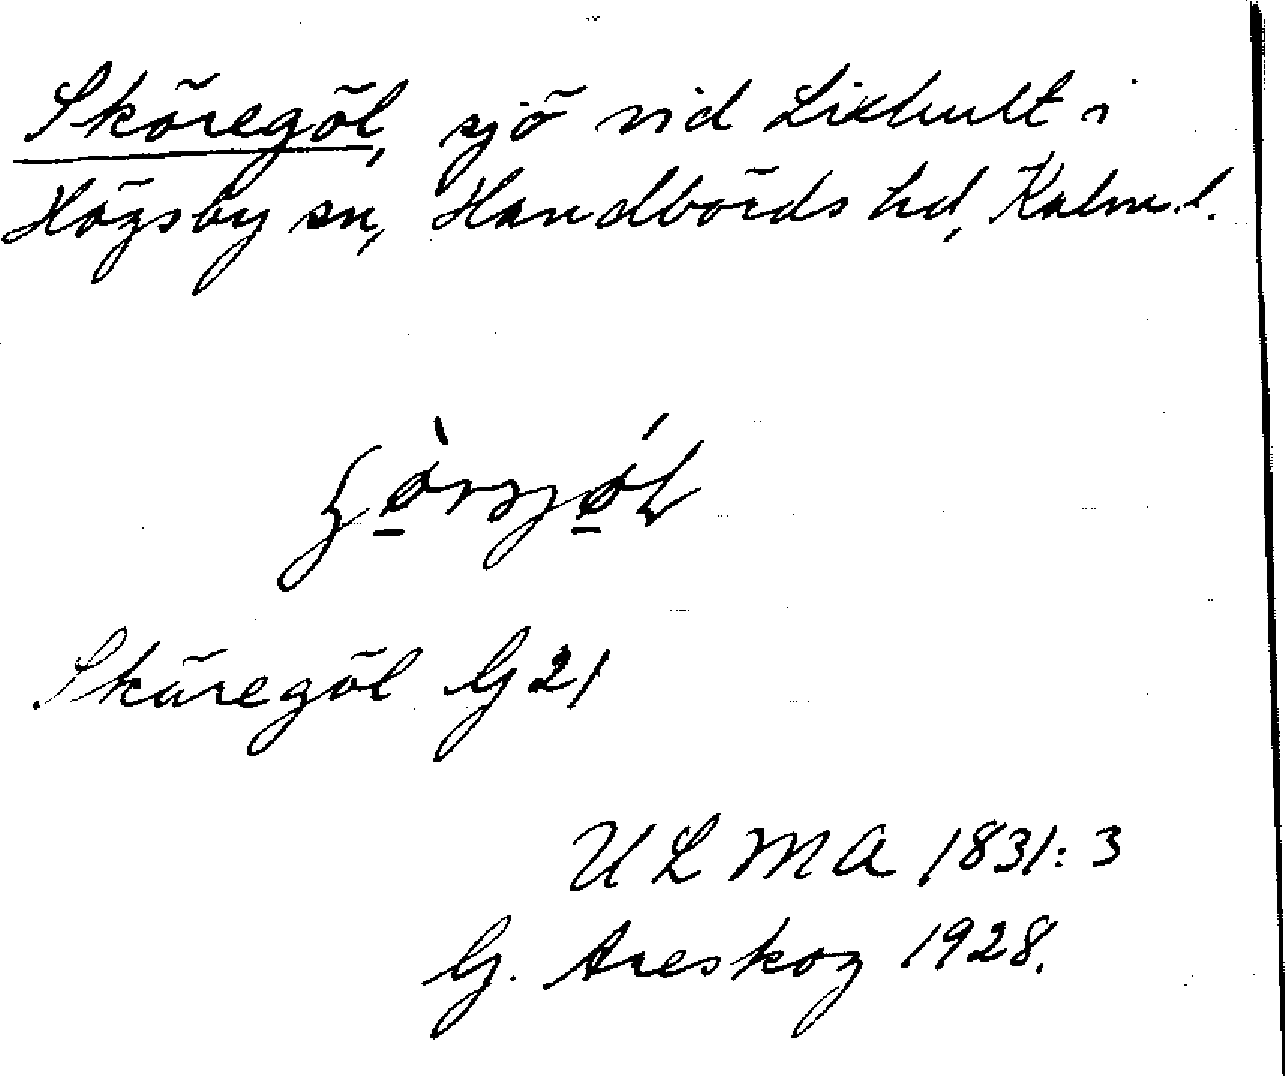 Sköregöl, sjö vid Lixhult i
Högsby sn, Handbörds hd, Kalm. l.
Sköregöl G 21
ULMA 1831:3
G. Areskog 1928.